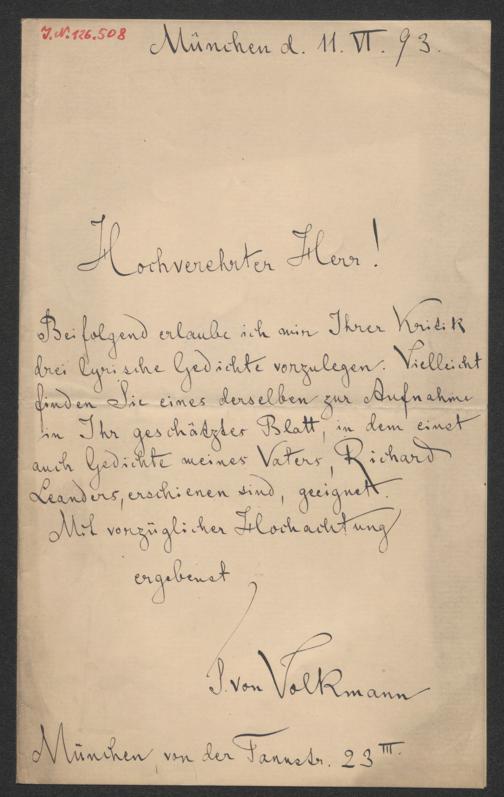 J.N. 126.508
München d. 11. VI. 93.
Hochverehrter Herr!
Beifolgend erlaube ich mir Ihrer Kritik
drei lyrische Gedichte vorzulegen. Vielleicht
finden Sie eines derselben zur Aufnahme
in Ihr geschätztes Blatt, in dem einst
auch Gedichte meines Vaters, Richard
Leanders, erschienen sind, geeignet.
Mit vorzüglicher Hochachtung
ergebenst
von Volkmann
München von der Tannstr. 23 III.